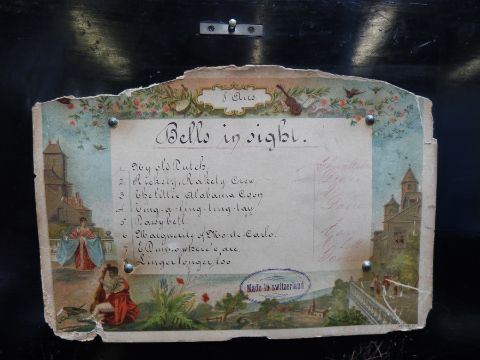 8 Airs
Bells in sight.
1 My old Dutch
2 Rickety, Rakety Crew.
3 The little Alabama Coon
4 Ting-a-ting-ting-tay
5 Daisy bell
6 Marguerite of Monte-Carlo.
7 E Dunno where'e are
Linger longer loo
Made in Switzerland